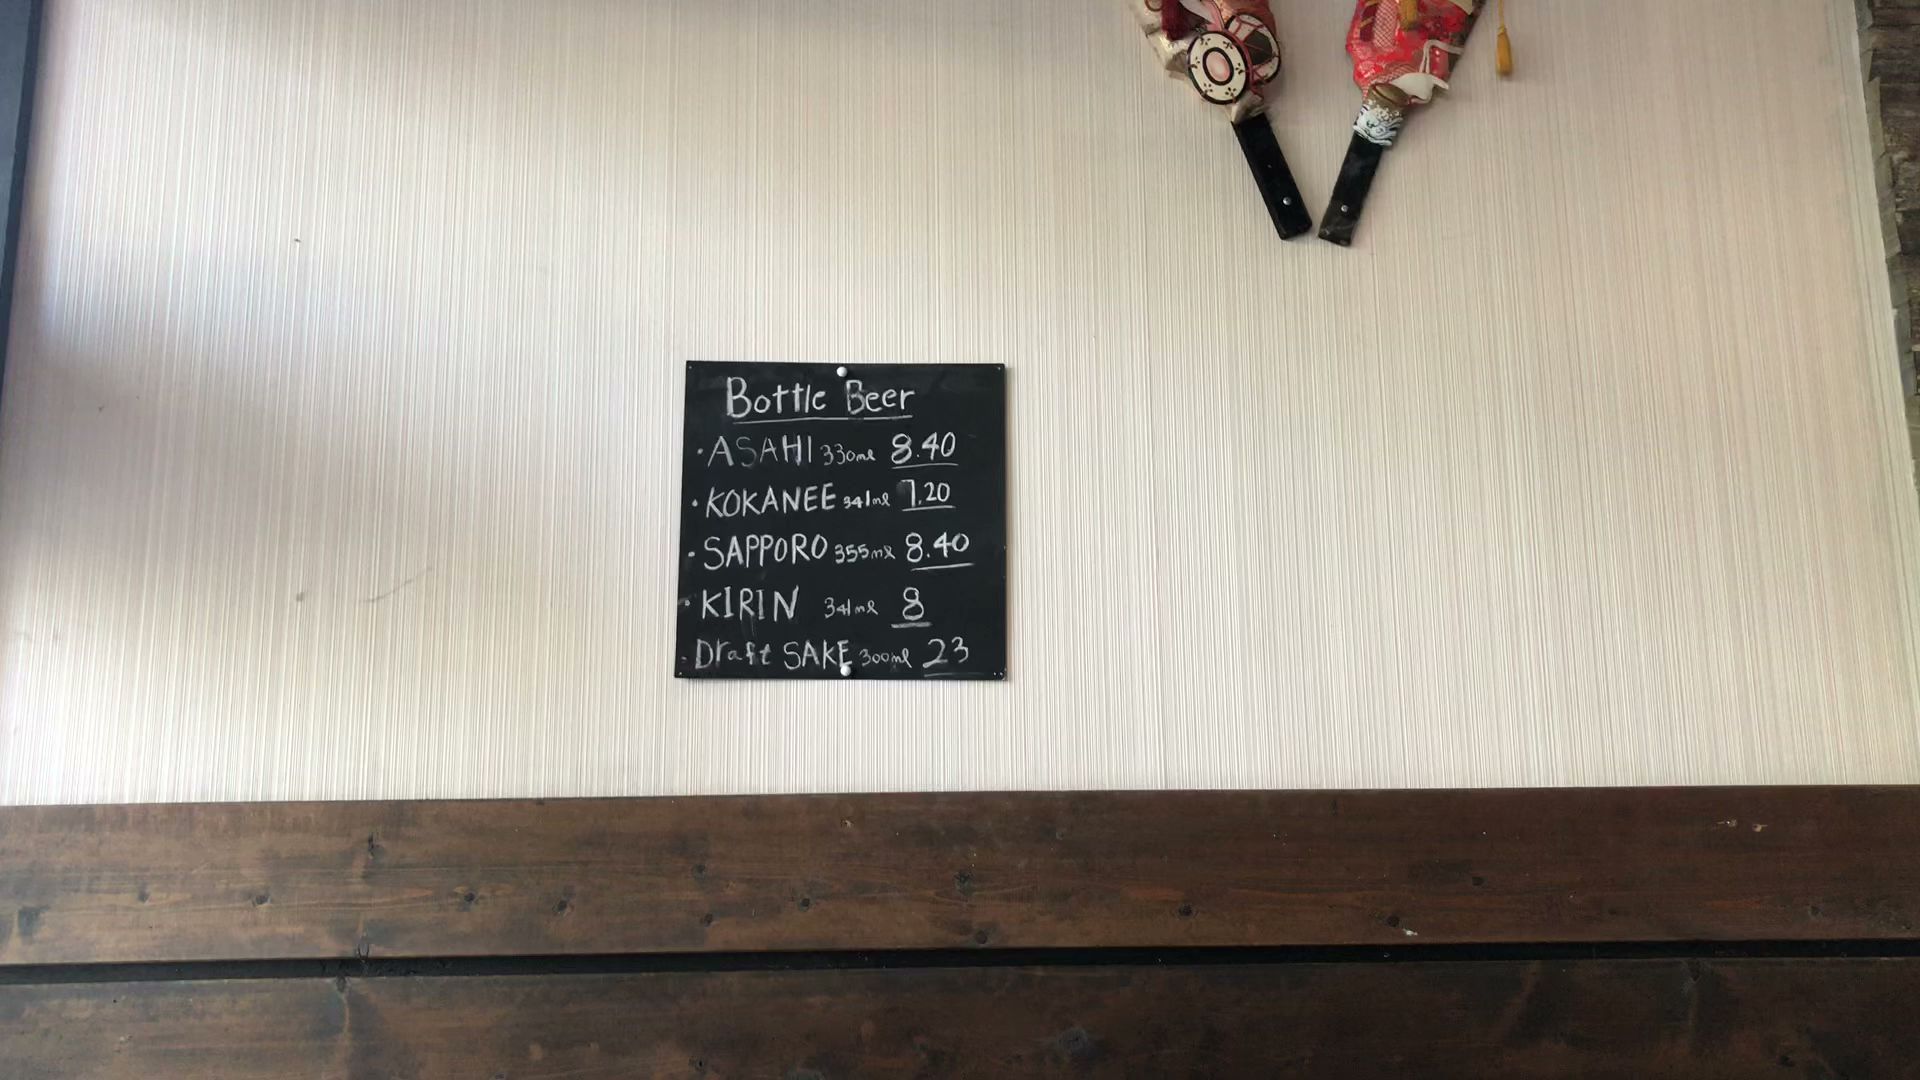 Bottle Beer
· ASAHI 330ml 8.40
· KOKANEE 341ml 7.20
· SAPPORO 355ml 8.40
· KIRIN 341ml 8
· Draft SAKE 300ml 23